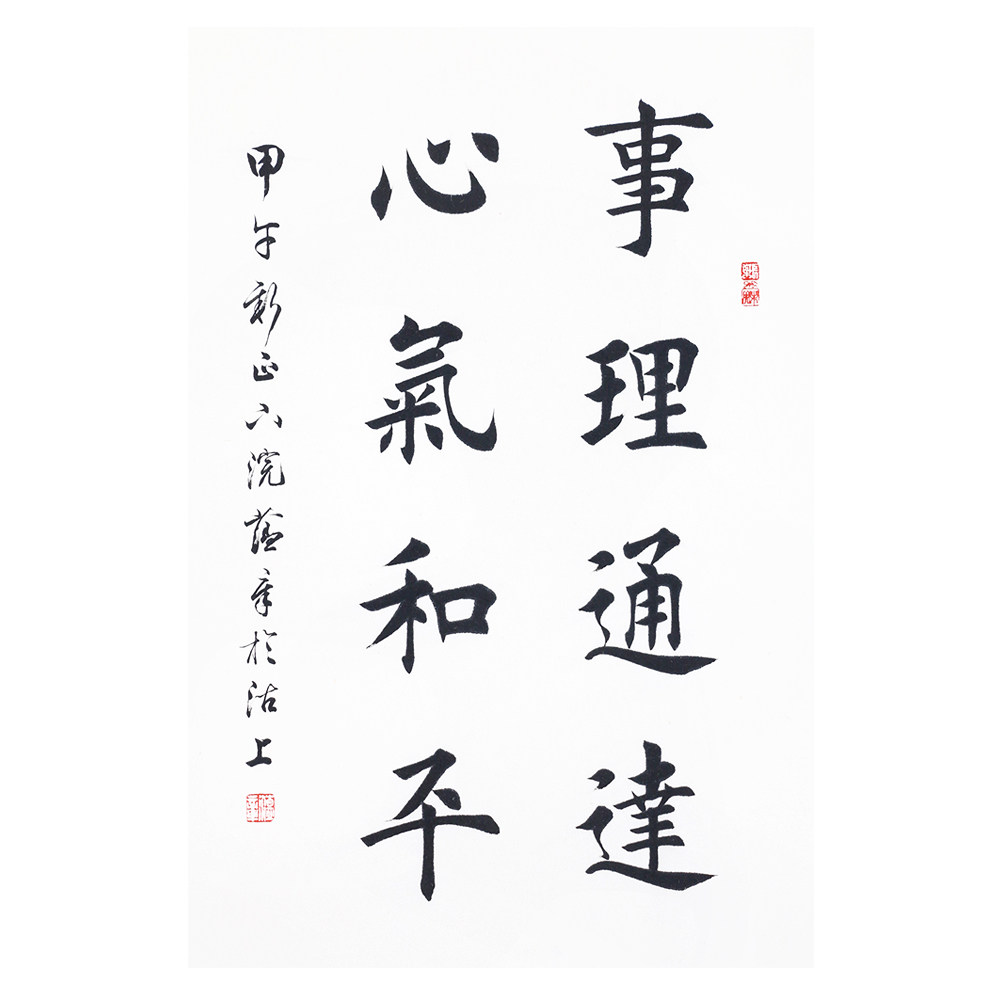 事理通達
心氣和平
甲午新正六浣蔭章於沽上